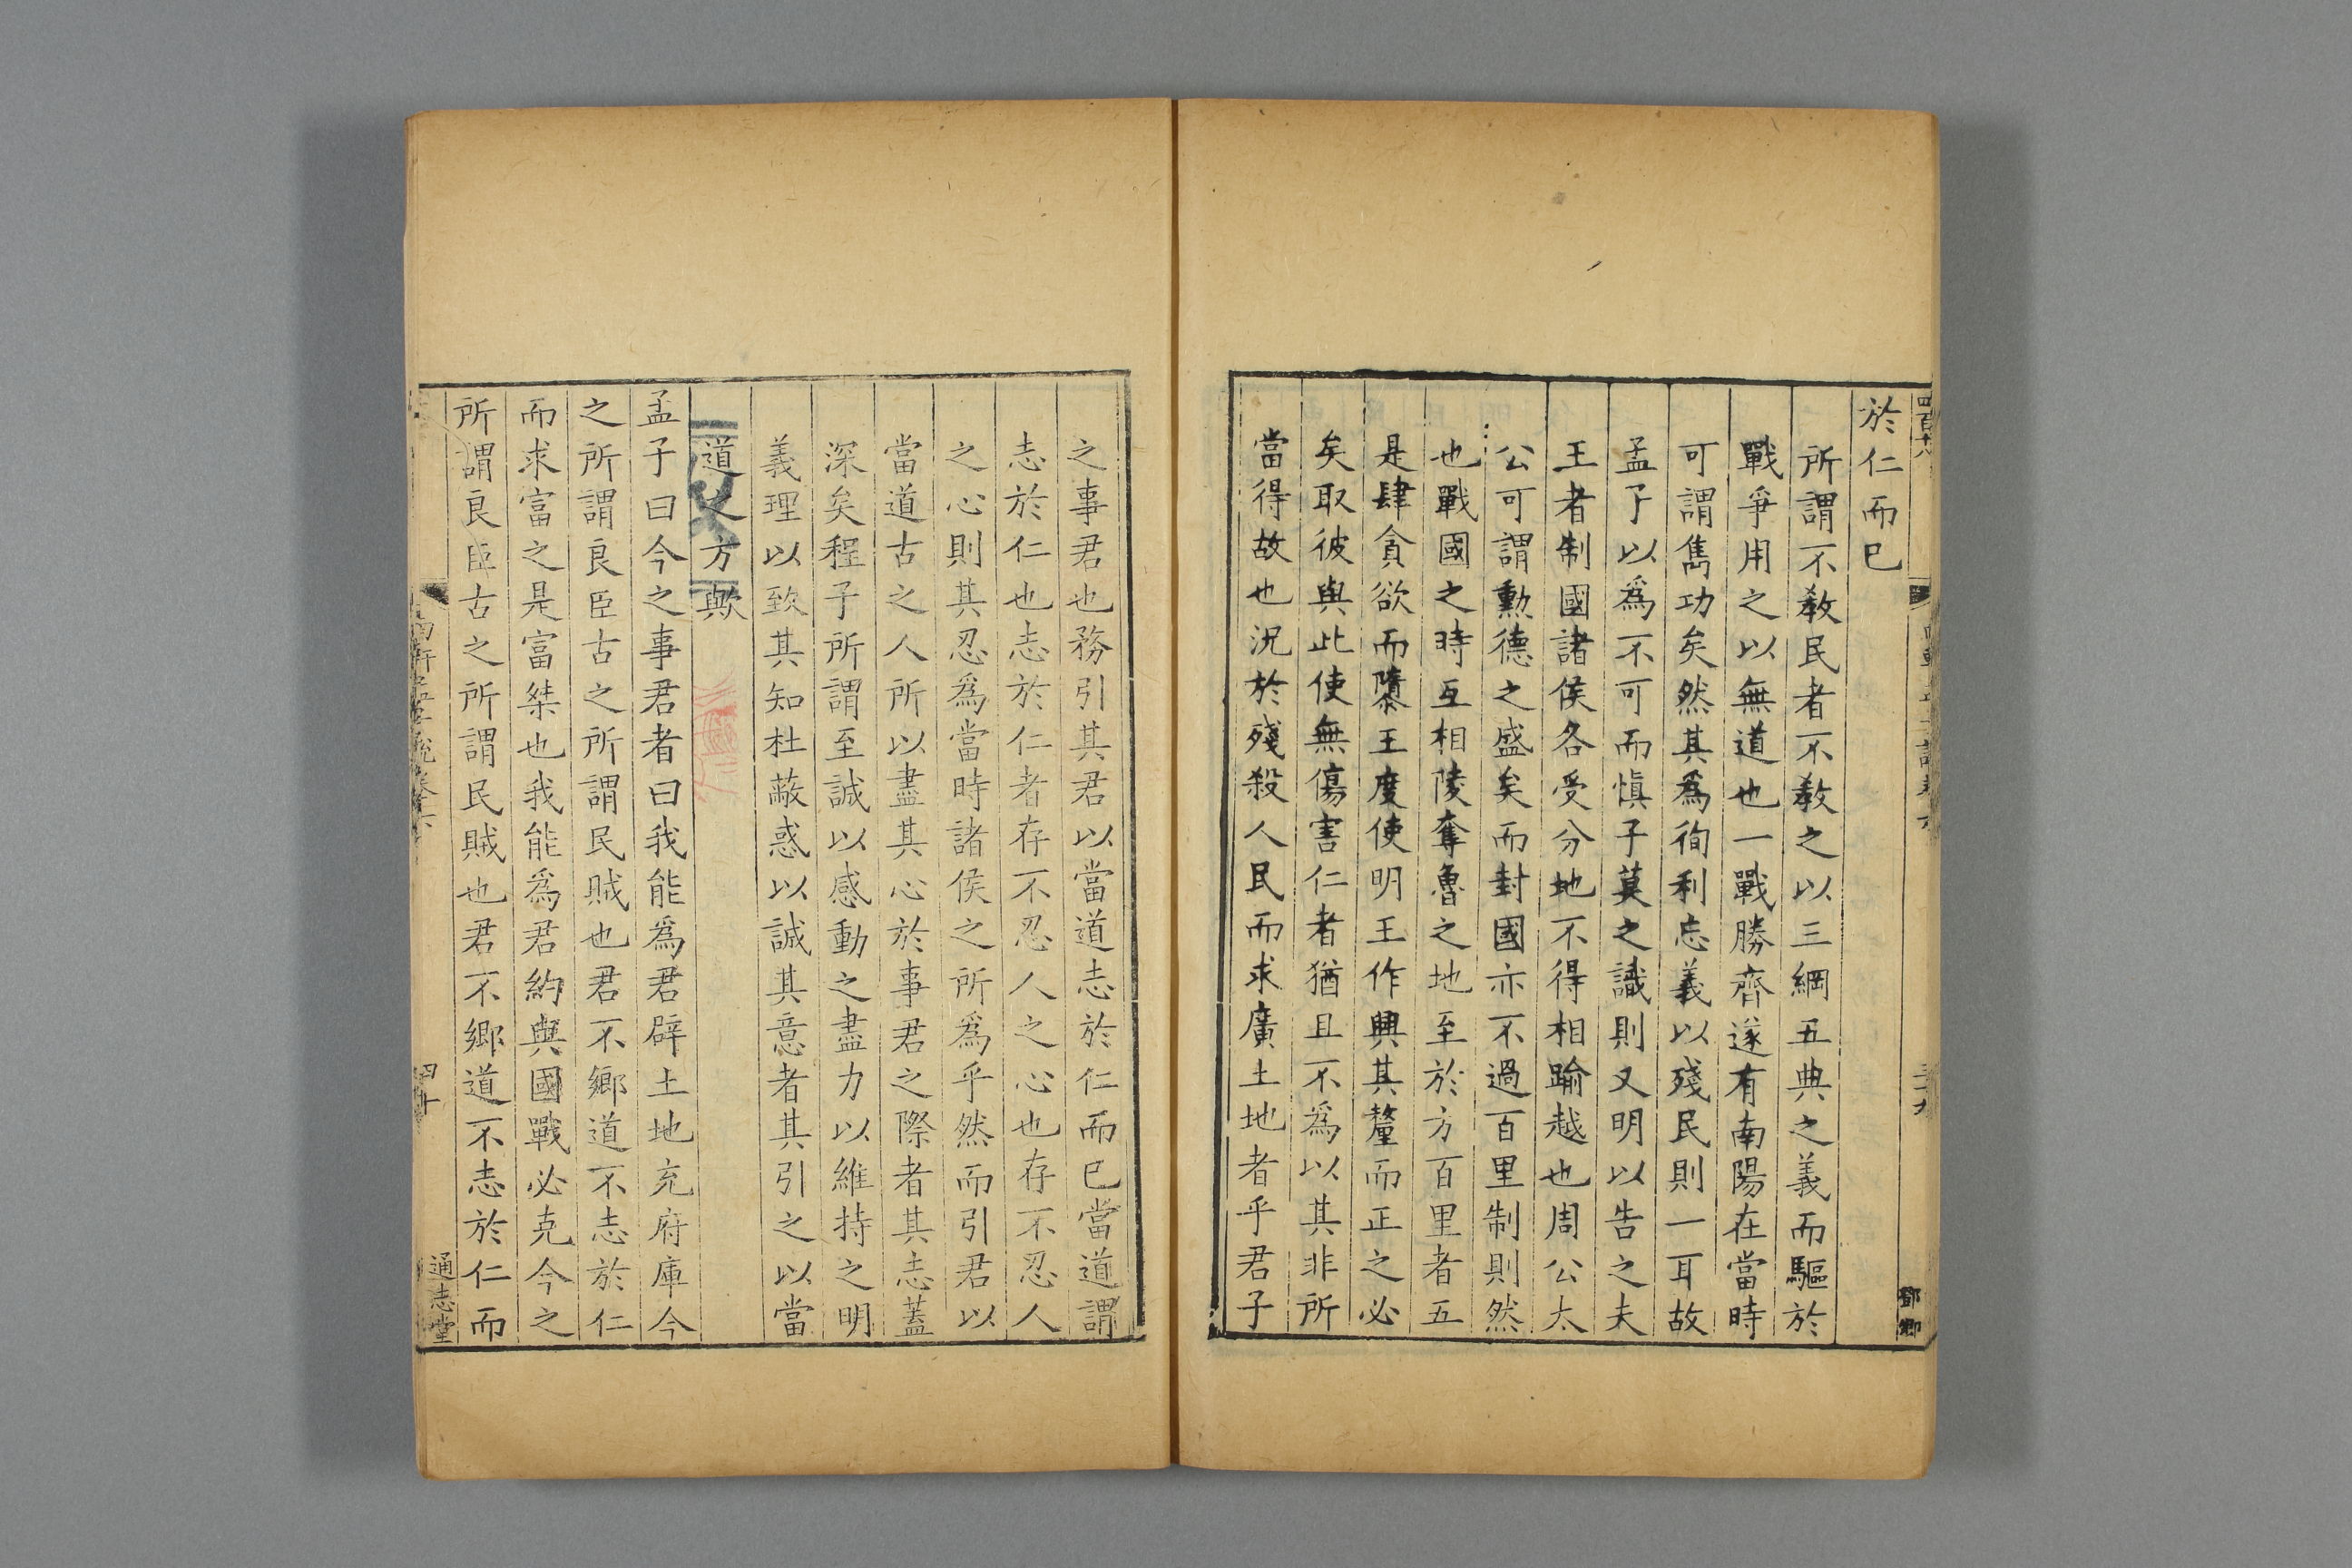 於仁而已
所謂不教民者不教之以三綱五典之義而驅於
戰爭用之以無道也一戰勝齊遂有南陽在當時
可謂雋功矣然其爲徇利忘義以殘民則一耳故
孟子以爲不可而慎子莫之識則又明以告之夫
王者制國諸侯各受分地不得相踰越也周公太
公可謂勳德之盛矣而封國亦不過百里制則然
也戰國之時互相陵奪魯之地至於方百里者五
是肆貪欲而隳王度使明王作興其釐而正之必
矣取彼與此使無傷害仁者猶且不為以其非所
當得故也況於殘殺人民而求廣土地者乎君子
鄧卿
之事君也務引其君以當道志於仁而已當道謂
志於仁也志於仁者存不忍人之心也存不忍人
之心則其忍爲當時諸侯之所爲乎然而引君以
當道古之人所以盡其心於事君之際者其志蓋
深矣程子所謂至誠以感動之盡力以維持之明
義理以致其知杜蔽惑以誠其意者其引之以當
道之方歟
孟子曰今之事君者曰我能爲君辟土地充府庫今
之所謂良臣古之所謂民賊也君不鄉道不志於仁
而求富之是富桀也我能爲君約與國戰必克今之
所謂良臣古之所謂民賊也君不鄉道不志於仁而
通志堂